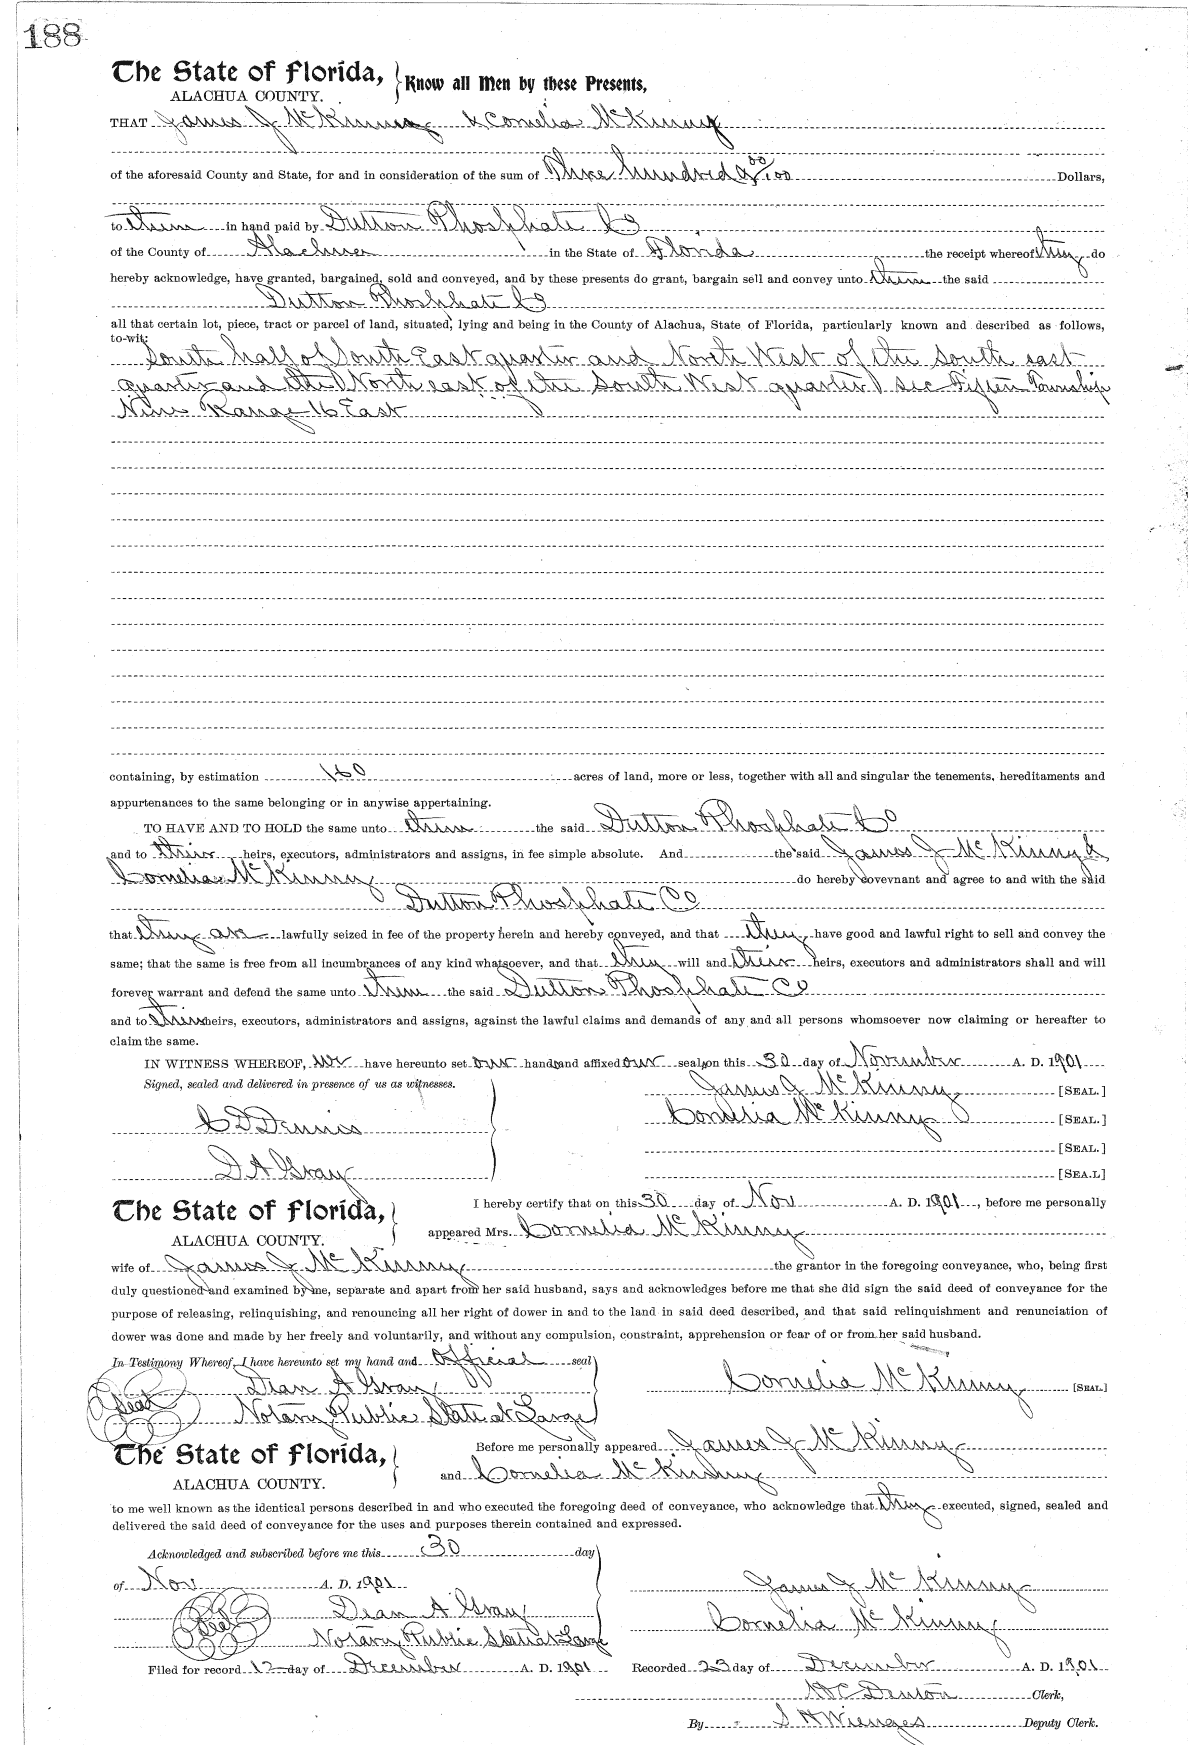 188
The State of Florida, } Know all Men by these Presents,
ALACHUA COUNTY.
THAT James J McKinny & Cornelia McKinny
of the aforesaid County and State, for and in consideration of the sum of Three hundred & 00/100 Dollars,
to them in hand paid by Dutton Phosphate Co
of the County of Alachua in the State of Florida the receipt whereof they do
hereby acknowledge, have granted, bargained, sold and conveyed, and by these presents do grant, bargain sell and convey unto them the said
Dutton Phosphate Co
all that certain lot, piece, tract or parcel of land, situated, lying and being in the County of Alachua, State of Florida, particularly known and described as follows,
to-wit:
South half of South East quarter and North West of the south east
quarter and the (North east of the South West quarter) sec Fifteen Township
Nine Range 16 East
containing, by estimation 160 acres of land, more or less, together with all and singular the tenements, hereditaments and
appurtenances to the same belonging or in anywise appertaining.
TO HAVE AND TO HOLD the same unto them the said Dutton Phosphate Co
and to their heirs, executors, administrators and assigns, in fee simple absolute. And the said James J McKinny &
Cornelia McKinny do hereby covevnant and agree to and with the said
Dutton Phosphate Co
that they are lawfully seized in fee of the property herein and hereby conveyed, and that they have good and lawful right to sell and convey the
same; that the same is free from all incumbrances of any kind whatsoever, and that they will and their heirs, executors and administrators shall and will
forever warrant and defend the same unto them the said Dutton Phosphate Co
and to their heirs, executors, administrators and assigns, against the lawful claims and demands of any and all persons whomsoever now claiming or hereafter to
claim the same.
IN WITNESS WHEREOF, we have hereunto set our hands and affixed our seals on this 30 day of November A. D. 1901
Signed, sealed and delivered in presence of us as witnesses. James J McKinny [SEAL.]
C D Dennis Cornelia McKinny [SEAL.]
[SEAL.]
D A Gray [SEA.L]
The State of Florida, } I hereby certify that on this 30 day of Nov A. D. 1901, before me personally
ALACHUA COUNTY. appeared Mrs. Cornelia McKinny
wife of James J McKinny the grantor in the foregoing conveyance, who, being first
duly questioned and examined by me, separate and apart from her said husband, says and acknowledges before me that she did sign the said deed of conveyance for the
purpose of releasing, relinquishing, and renouncing all her right of dower in and to the land in said deed described, and that said relinquishment and renunciation of
dower was done and made by her freely and voluntarily, and without any compulsion, constraint, apprehension or fear of or from her said husband.
In Testimony Whereof, I have hereunto set my hand and official seal
Dean A Gray Cornelia McKinny [SEAL]
Seal Notary Public State at Large
The State of Florida, } Before me personally appeared James J McKinny
ALACHUA COUNTY. and Cornelia McKinny
to me well known as the identical persons described in and who executed the foregoing deed of conveyance, who acknowledge that they executed, signed, sealed and
delivered the said deed of conveyance for the uses and purposes therein contained and expressed.
Acknowledged and subscribed before me this 30 day
of Nov A. D. 1901 James J McKinny
Seal Dean A Gray Cornelia McKinny
Notary Public State at Large
Filed for record 12 day of December A. D. 1901 Recorded 23 day of December A. D. 1901
H C Denton Clerk,
By S H Wienges Deputy Clerk.